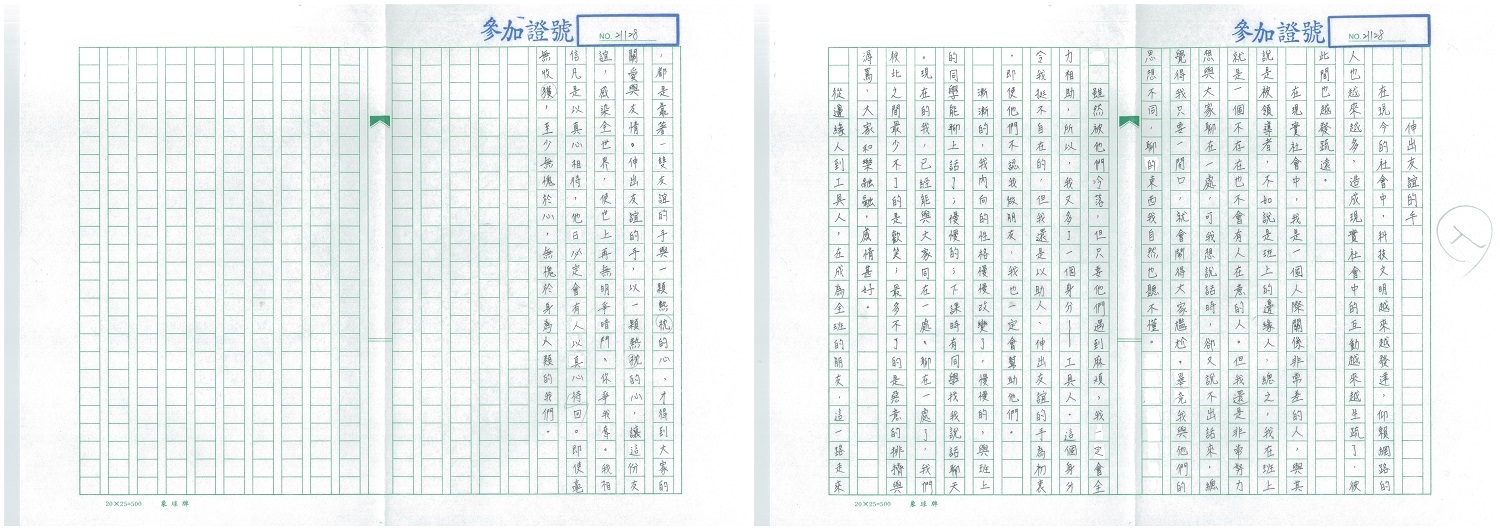 參加證號 NO. 21128
伸出友誼的手
在現今的社會中，科技文明越來越發達，仰賴網路的
人也越來越多，造成現實社會中的互動越來越生疏了，彼
此間也越發疏遠。
在現實社會中，我是一個人際關係非常差的人，與其
說是被領導者，不如說是班上的邊緣人，總之，我在班上
就是一個不在在也不會有人在意的人。但我還是非常努力
想與大家聊在一處，可我想說話時，卻又說不出話來，總
覺得我只要一開口，就會鬧得大家尷尬。畢竟我與他們的
思想不同，聊的東西我自然也聽不懂。
雖然被他們冷落，但只要他們遇到麻煩，我一定會全
力相助，所以，我又多了一個身分——工具人。這個身分
令我挺不自在的，但我還是以助人、伸出友誼的手為初衷
，即使他們不認我做朋友，我也一定會幫助他們。
漸漸的，我內向的性格慢慢改變了，慢慢的，與班上
的同學能聊上話了；慢慢的；下課時有同學找我說話聊天
。現在的我，已經能與大家同在一處。聊在一處了，我們
彼此之間最少不了的是歡笑，最多不了的是惡意的排擠與
辱罵，大家和樂融融，感情甚好。
從邊緣人到工具人，在成為全班的朋友，這一路走來
20×25=500 象球牌
參加證號 NO. 21128
，都是靠著一雙友誼的手與一顆熱忱的心，才得到大家的
關愛與友情。伸出友誼的手，以一顆熱忱的心，讓這份友
誼，感染全世界，使世上再無明爭暗鬥。你爭我奪。我相
信凡是以真心相待，他日必定會有人以真心待回。即使毫
無收獲，至少無愧於心，無愧於身為人類的我們。
20×25=500 象球牌